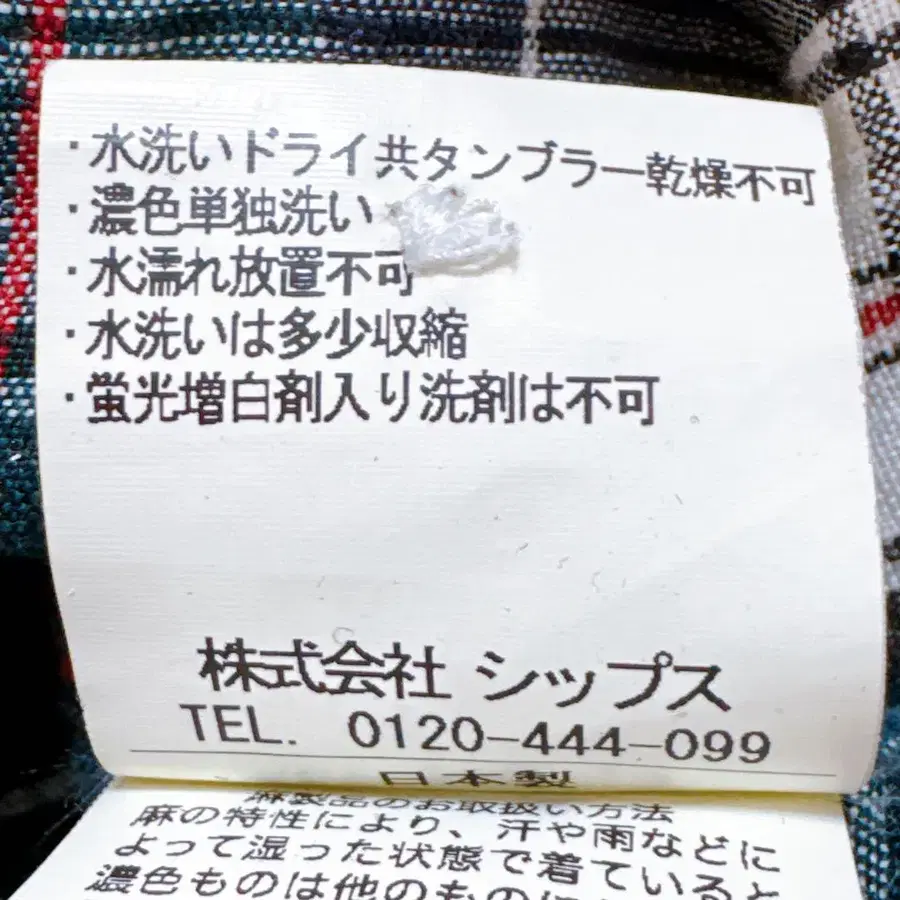 ・水洗いドライ共タンブラー乾燥不可
・濃色単独洗い
・水濡れ放置不可
・水洗いは多少収縮
・蛍光増白剤入り洗剤は不可
株式会社 シップス
TEL. 0120-444-099
日本製
麻製品のお取扱い方法
麻の特性により、汗や雨などに
よって湿った状態で着ていると
濃色ものは他のものに